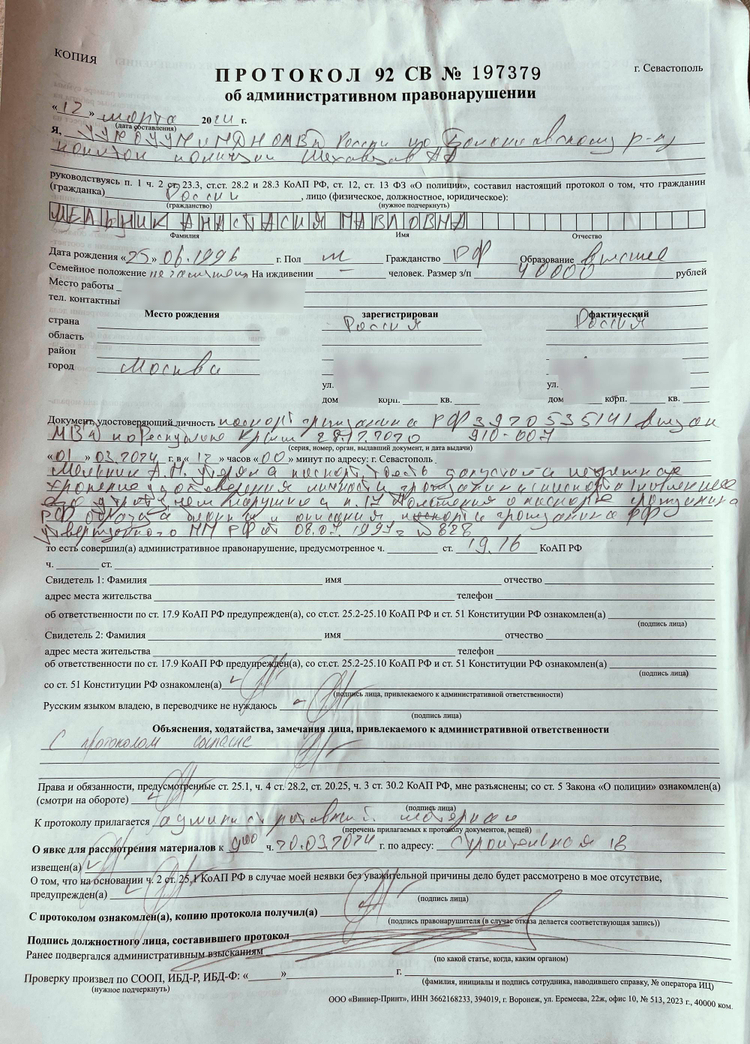 КОПИЯ
ПРОТОКОЛ 92 СВ № 197379
г. Севастополь
об административном правонарушении
«12» марта 2024 г.
(дата составления)
Я, УУП ОУУП и ПДН ОМВД России по Балаклавскому р-ну
капитан полиции
руководствуясь п. 1 ч. 2 ст. 23.3, ст.ст. 28.2 и 28.3 КоАП РФ, ст. 12, ст. 13 ФЗ «О полиции», составил настоящий протокол о том, что гражданин
(гражданка) России, лицо (физическое, должностное, юридическое):
(гражданство) (нужное подчеркнуть)
МЕЛЬНИК АНАСТАСИЯ ПАВЛОВНА
Фамилия Имя Отчество
Дата рождения «25» 06.1996 г. Пол Гражданство РФ Образование высшее
Семейное положение На иждивении — человек. Размер з/п 40000 рублей
Место работы
тел. контактный
Место рождения зарегистрирован фактический
страна Россия Россия
область
район
город Москва
ул. ул.
дом корп. кв. дом корп. кв.
Документ, удостоверяющий личность паспорт гражданина РФ 3920535141 выдан
МВД по Республике Крым 28.12.2020 910-007
(серия, номер, орган, выдавший документ, и дата выдачи)
«01» 03.2024 г. в «12» часов «00» минут по адресу: г. Севастополь
Мельник А.П. паспорт, то есть допустила небрежное
хранение удостоверения личности гражданина (паспорта)
чем нарушила п. 17 Положения о паспорте гражданина
РФ образца бланка и описания паспорта гражданина РФ
утвержденного ПП РФ от 08.07.1997 № 828
то есть совершил(а) административное правонарушение, предусмотренное ч. ст. 19.16 КоАП РФ
ч. ст.
Свидетель 1: Фамилия имя отчество
адрес места жительства телефон
об ответственности по ст. 17.9 КоАП РФ предупрежден(а), со ст.ст. 25.2-25.10 КоАП РФ и ст. 51 Конституции РФ ознакомлен(а)
(подпись лица)
Свидетель 2: Фамилия имя отчество
адрес места жительства телефон
об ответственности по ст. 17.9 КоАП РФ предупрежден(а), со ст.ст. 25.2-25.10 КоАП РФ и ст. 51 Конституции РФ ознакомлен(а)
(подпись лица)
со ст. 51 Конституции РФ ознакомлен(а)
(подпись лица, привлекаемого к административной ответственности)
Русским языком владею, в переводчике не нуждаюсь
(подпись лица)
Объяснения, ходатайства, замечания лица, привлекаемого к административной ответственности
С протоколом согласна
Права и обязанности, предусмотренные ст. 25.1, ч. 4 ст. 28.2, ст. 20.25, ч. 3 ст. 30.2 КоАП РФ, мне разъяснены; со ст. 5 Закона «О полиции» ознакомлен(а)
(смотри на обороте)
(подпись лица)
К протоколу прилагается материал
(перечень прилагаемых к протоколу документов, вещей)
О явке для рассмотрения материалов к 9 00 ч. 20.03.2024 г. по адресу: Строительная 18
извещен(а)
О том, что на основании ч. 2 ст. 25.1 КоАП РФ в случае моей неявки без уважительной причины дело будет рассмотрено в мое отсутствие,
предупрежден(а)
(подпись лица)
С протоколом ознакомлен(а), копию протокола получил(а)
(подпись правонарушителя (в случае отказа делается соответствующая запись))
Подпись должностного лица, составившего протокол
Ранее подвергался административным взысканиям
(по какой статье, когда, каким органом)
Проверку произвел по СООП, ИБД-Р, ИБД-Ф: « » г.
(нужное подчеркнуть) (фамилия, инициалы и подпись сотрудника, наводившего справку, № оператора ИЦ)
ООО «Виннер-Принт», ИНН 3662168233, 394019, г. Воронеж, ул. Еремеева, 22ж, офис 10, № 513, 2023 г., 40000 ком.